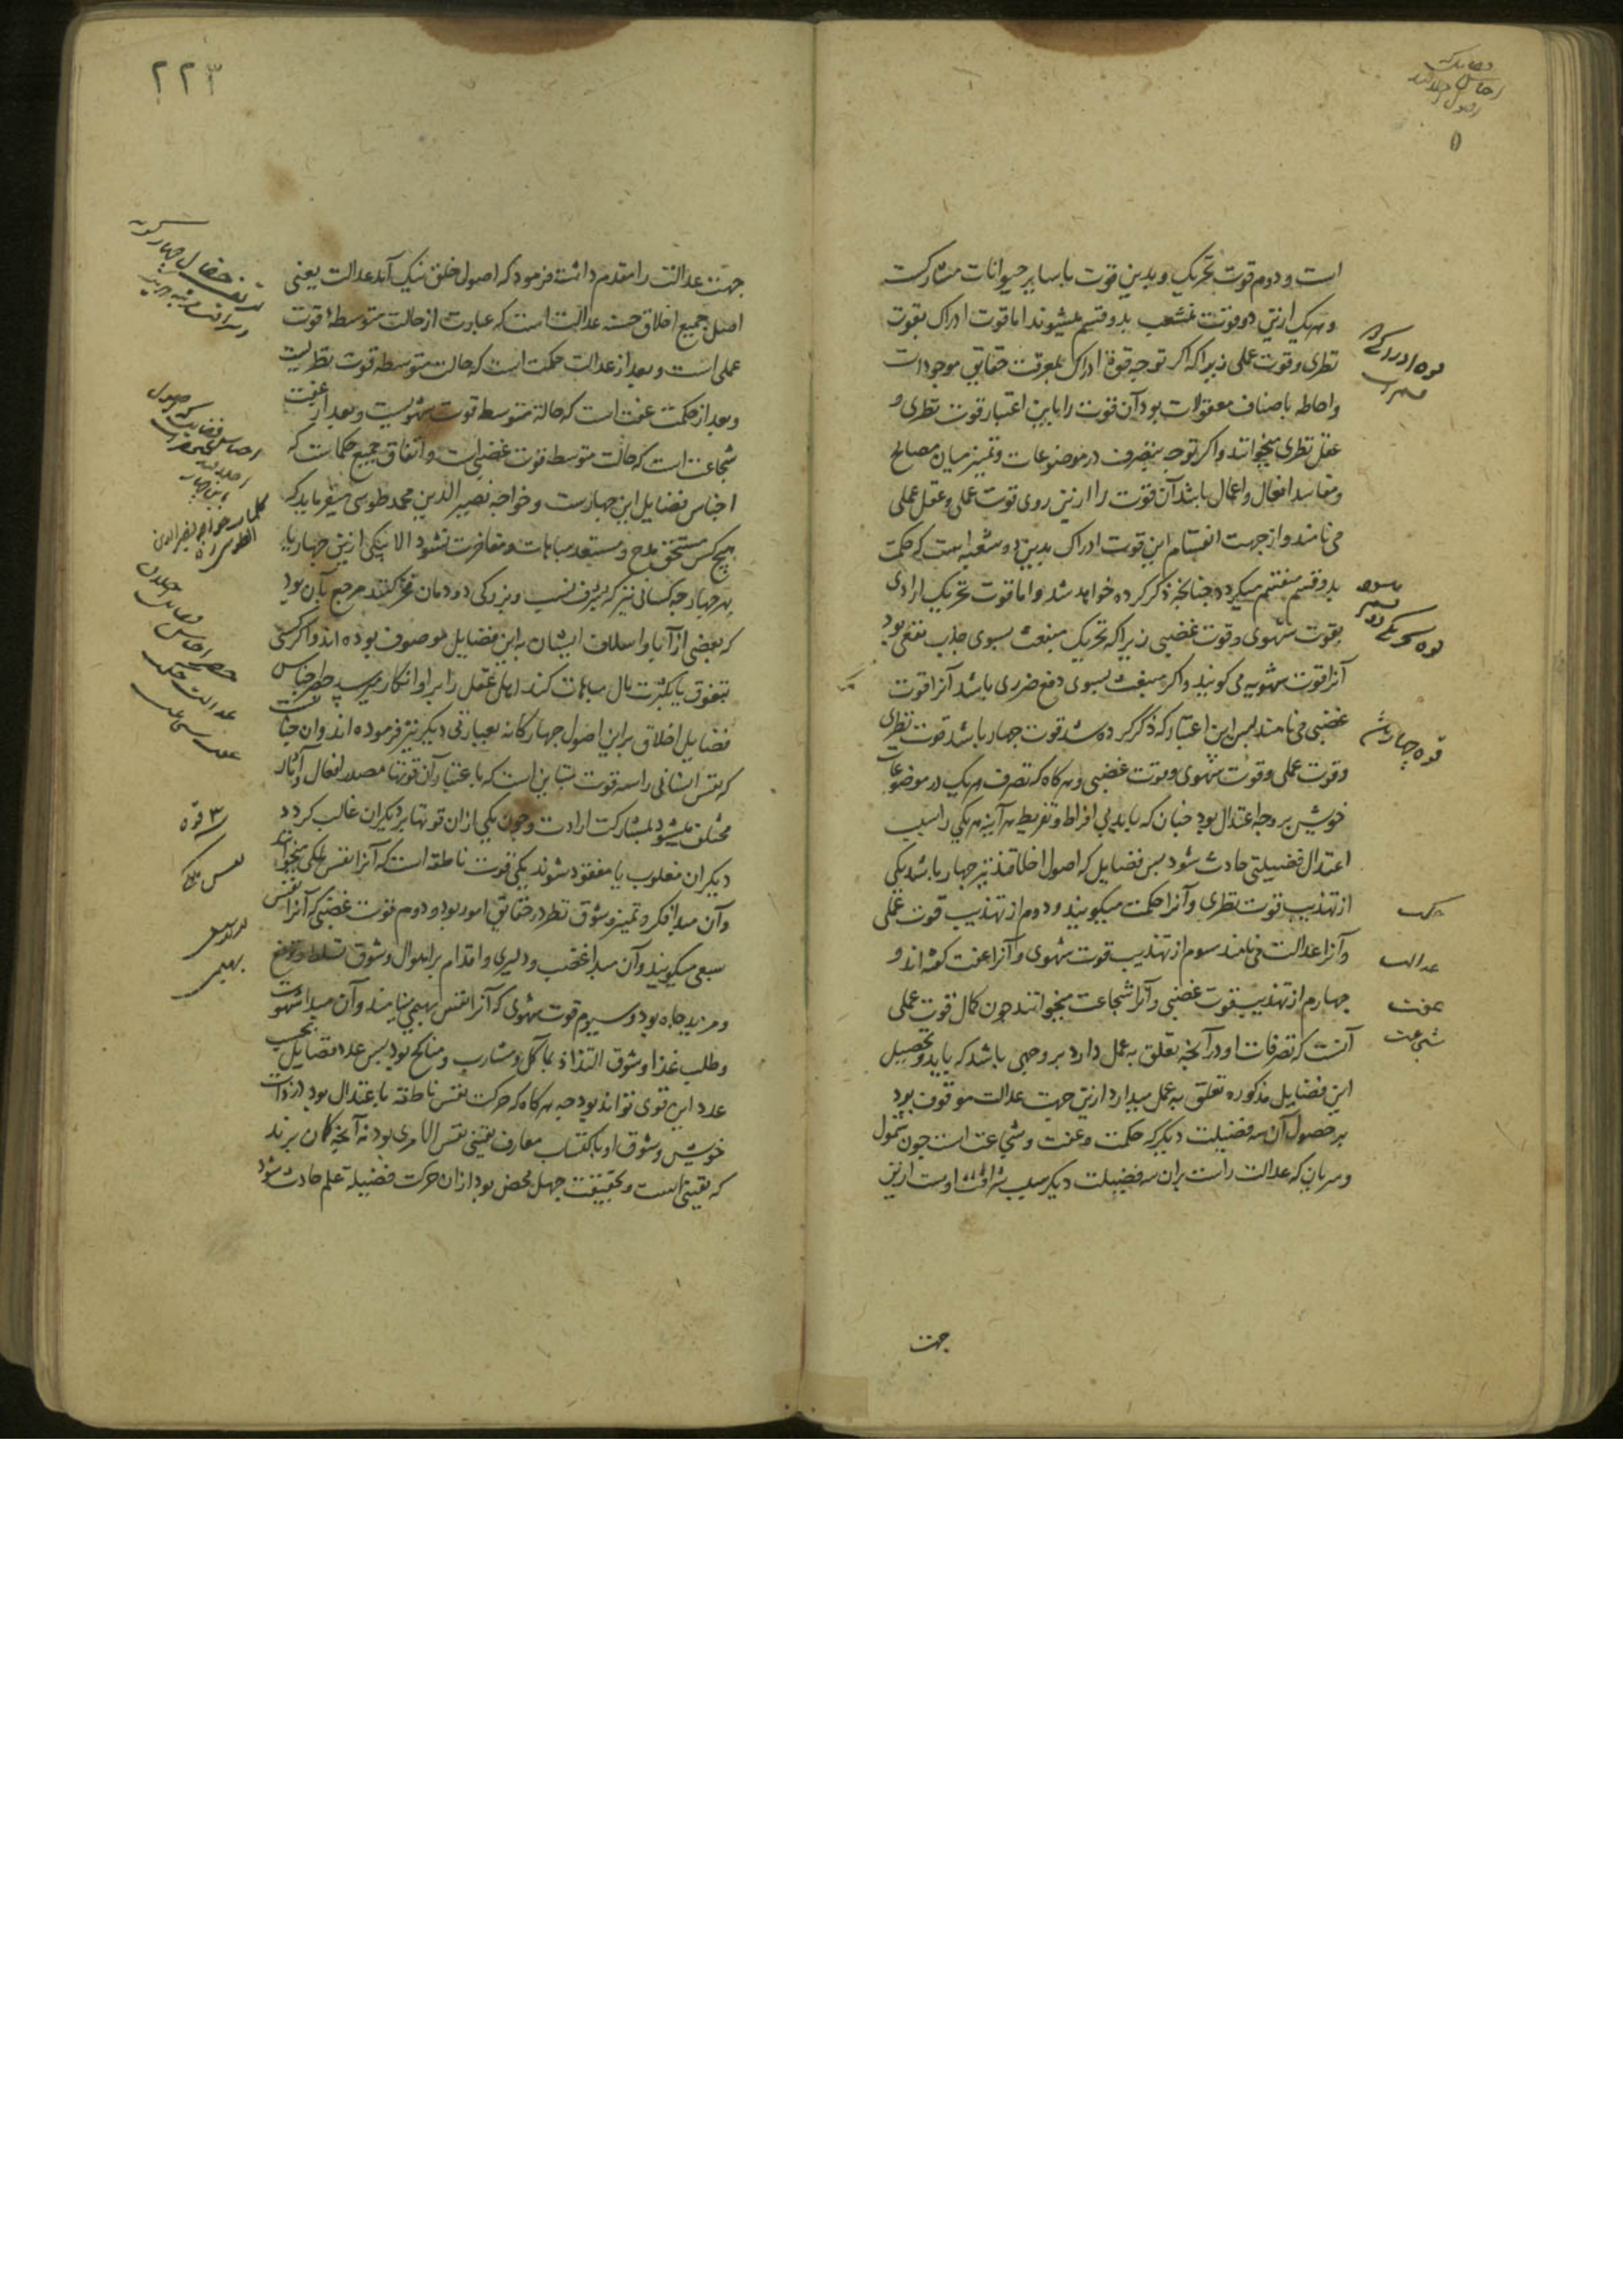 است و دوم قوت تحریک و بدین قوت با سایر حیوانات مشارکست
و هریک ازین دو قوت منشعب بدو قسم میشوند اما قوت ادراک بقوت
نظری و قوت عملی زیرا که اکر توجه قوة ادراک بمعرفت حقایق موجودات
و احاطه باصناف معقولات بود آن قوت را باین اعتبار قوت نظری و
عقل نظری میخوانند و اکر توجه بتصرف در موضوعات و تمییز میان مصالح
و مفاسد افعال و اعمال باشد آن قوت را ازین روی قوت عملی و عقل عملی
می نامند و از جهت انقسام این قوت ادراک بدین دو شعبه است که حکمت
بدو قسم منقسم میکردد جنانجه ذکر کرده خواهد شد و اما قوت تحریک ارادی
بقوت شهوی و قوت غضبی زیرا که تحریک منبعث بسوی جذب نفعی بود
آنرا قوت شهویه می کویند و اکر منبعث بسوی دفع ضرری باشد آنرا قوت
غضبی می نامند پس این اعتبار که ذکر کرده شد قوت جهار باشد قوت نظری
و قوت عملی و قوت شهوی و قوت غضبی و هرکاه که تصرف هریک در موضوعات
خویش بر وجه اعتدال بود جنان که باید بی افراط و تفریط هر آینه هر یکی را بسبب
اعتدال فضیلتی حادث شود پس فضایل که اصول اخلاقند نیز جهار باشد یکی
از تهذیب قوت نظری و آنرا حکمت میکویند و دوم از تهذیب قوت عملی
و آنرا عدالت می نامند سوم از تهذیب قوت شهوی و آنرا عفت کفته اند و
جهارم از تهذیب قوت غضبی و آنرا شجاعت میخوانند جون کمال قوت عملی
آنست که تصرفات او در آنجه تعلق به عمل دارد بر وجهی باشد که باید و تحصیل
این فضایل مذکوره تعلق به عمل میدارد ازین جهت عدالت موقوف بود
بر حصول آن سه فضیلت دیکر که حکمت و عفت و شجاعت است جون شمول
و سریان که عدالت راست بران سه فضیلت دیکر سبب شرافت اوست ازین
حکمت
عدالت
عفت
شجاعت
جهت
٢٢٣
جهت عدالت را مقدم داشته فرمود که اصول خلق نیک آمد عدالت یعنی
اصل جمیع اخلاق حسنه عدالت است که عبارت از حالت متوسطهٔ قوت
عملی است و بعد از عدالت حکمت است که حالت متوسطه قوت نظریست
و بعد از حکمت عفت است که حالة متوسط قوت شهویست و بعد از عفت
شجاعت است که حالت متوسطه قوت غضبی است و اتفاق جمیع حکماست که
اجناس فضایل این جهارست و خواجه نصیر الدین محمد طوسی میفرماید که
هیچ کس مستحق مدح و مستعد مباهات و مفاخرت نشود الا بیکی ازین جهار یا
بهر جهار جه کسانی نیز که بشرف نسب و بزرکی دودمان فخر کنند مرجع بآن بود
که بعضی از آبا و اسلاف ایشان به این فضایل موصوف بوده اند و اکر کسی
بتفوق یا بکثرت مال مباهات کند اهل عقل را بر او انکار میرسد
فضایل اخلاق بر این اصول جهارکانه بعبارتی دیکر نیز فرموده اند و آن جنانست
که نفس انسانی را سه قوت متباین است که باعتبار آن قوتها مصدر افعال و آثار
مختلف میشود بمشارکت ارادت و جون یکی ازان قوتها بر دیکران غالب کردد
دیکران مغلوب یا مفقود شوند یکی قوت ناطقه است که آنرا نفس ملکی میخوانند
و آن مبدا فکر و تمییز و شوق نظر در حقایق امور بود و دوم قوت غضبی که آنرا نفس
سبعی میکویند و آن مبدا غضب و دلیری و اقدام بر اهوال و شوق تسلط و ترفع
و مزید جاه بود و سیوم قوت شهوی که آنرا نفس بهیمی مینامند و آن مبدا شهوت
و طلب غذا و شوق التذاذ بمآکل و مشارب و مناکح بود پس عدد فضایل بحسب
عدد این قوی تواند بود جه هرکاه که حرکت نفس ناطقه باعتدال بود در ذات
خویش و شوق او باکتساب معارف یقینی نفس الامری بود نه آنجه کمان برند
که یقینی است و بحقیقت جهل محض بود ازان حرکت فضیلة علم حادث شود
٣ قوة
نفس ملکی
بهیمی